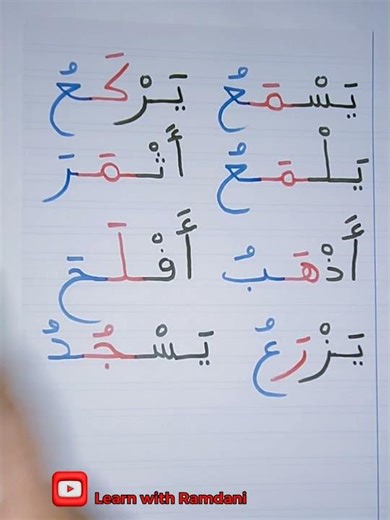 يَسْمَعُ يَرْكَعُ
يَلْمَعُ أَثْمَرَ
أَذْهَبُ أَفْلَحَ
يَزْرَعُ يَسْجُدُ
Learn with Ramdani